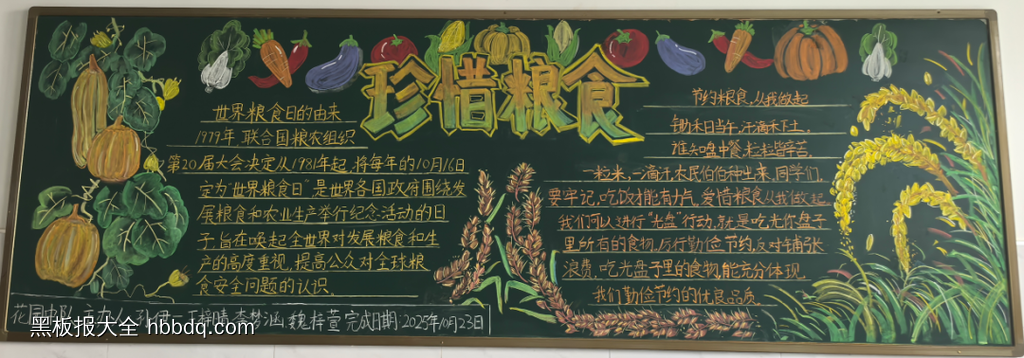 珍惜粮食
世界粮食日的由来
1979年联合国粮农组织
第20届大会决定从1981年起,将每年的10月16日
定为"世界粮食日"是世界各国政府围绕发
展粮食和农业生产举行纪念活动的日
子,旨在唤起全世界对发展粮食和生
产的高度重视,提高公众对全球粮
食安全问题的认识
节约粮食,从我做起
锄禾日当午,汗滴禾下土。
谁知盘中餐,粒粒皆辛苦。
一粒米,一滴汗,农民伯伯种出来,同学们,
要牢记,吃饭才能有力气,爱惜粮食从我做起
我们可以进行"光盘"行动,就是吃光你盘子
里所有的食物,厉行勤俭节约,反对铺张
浪费,吃光盘子里的食物,能充分体现
我们勤俭节约的优良品质。
花园中队 完成日期:2025年10月23日
黑板报大全 hbbdq.com